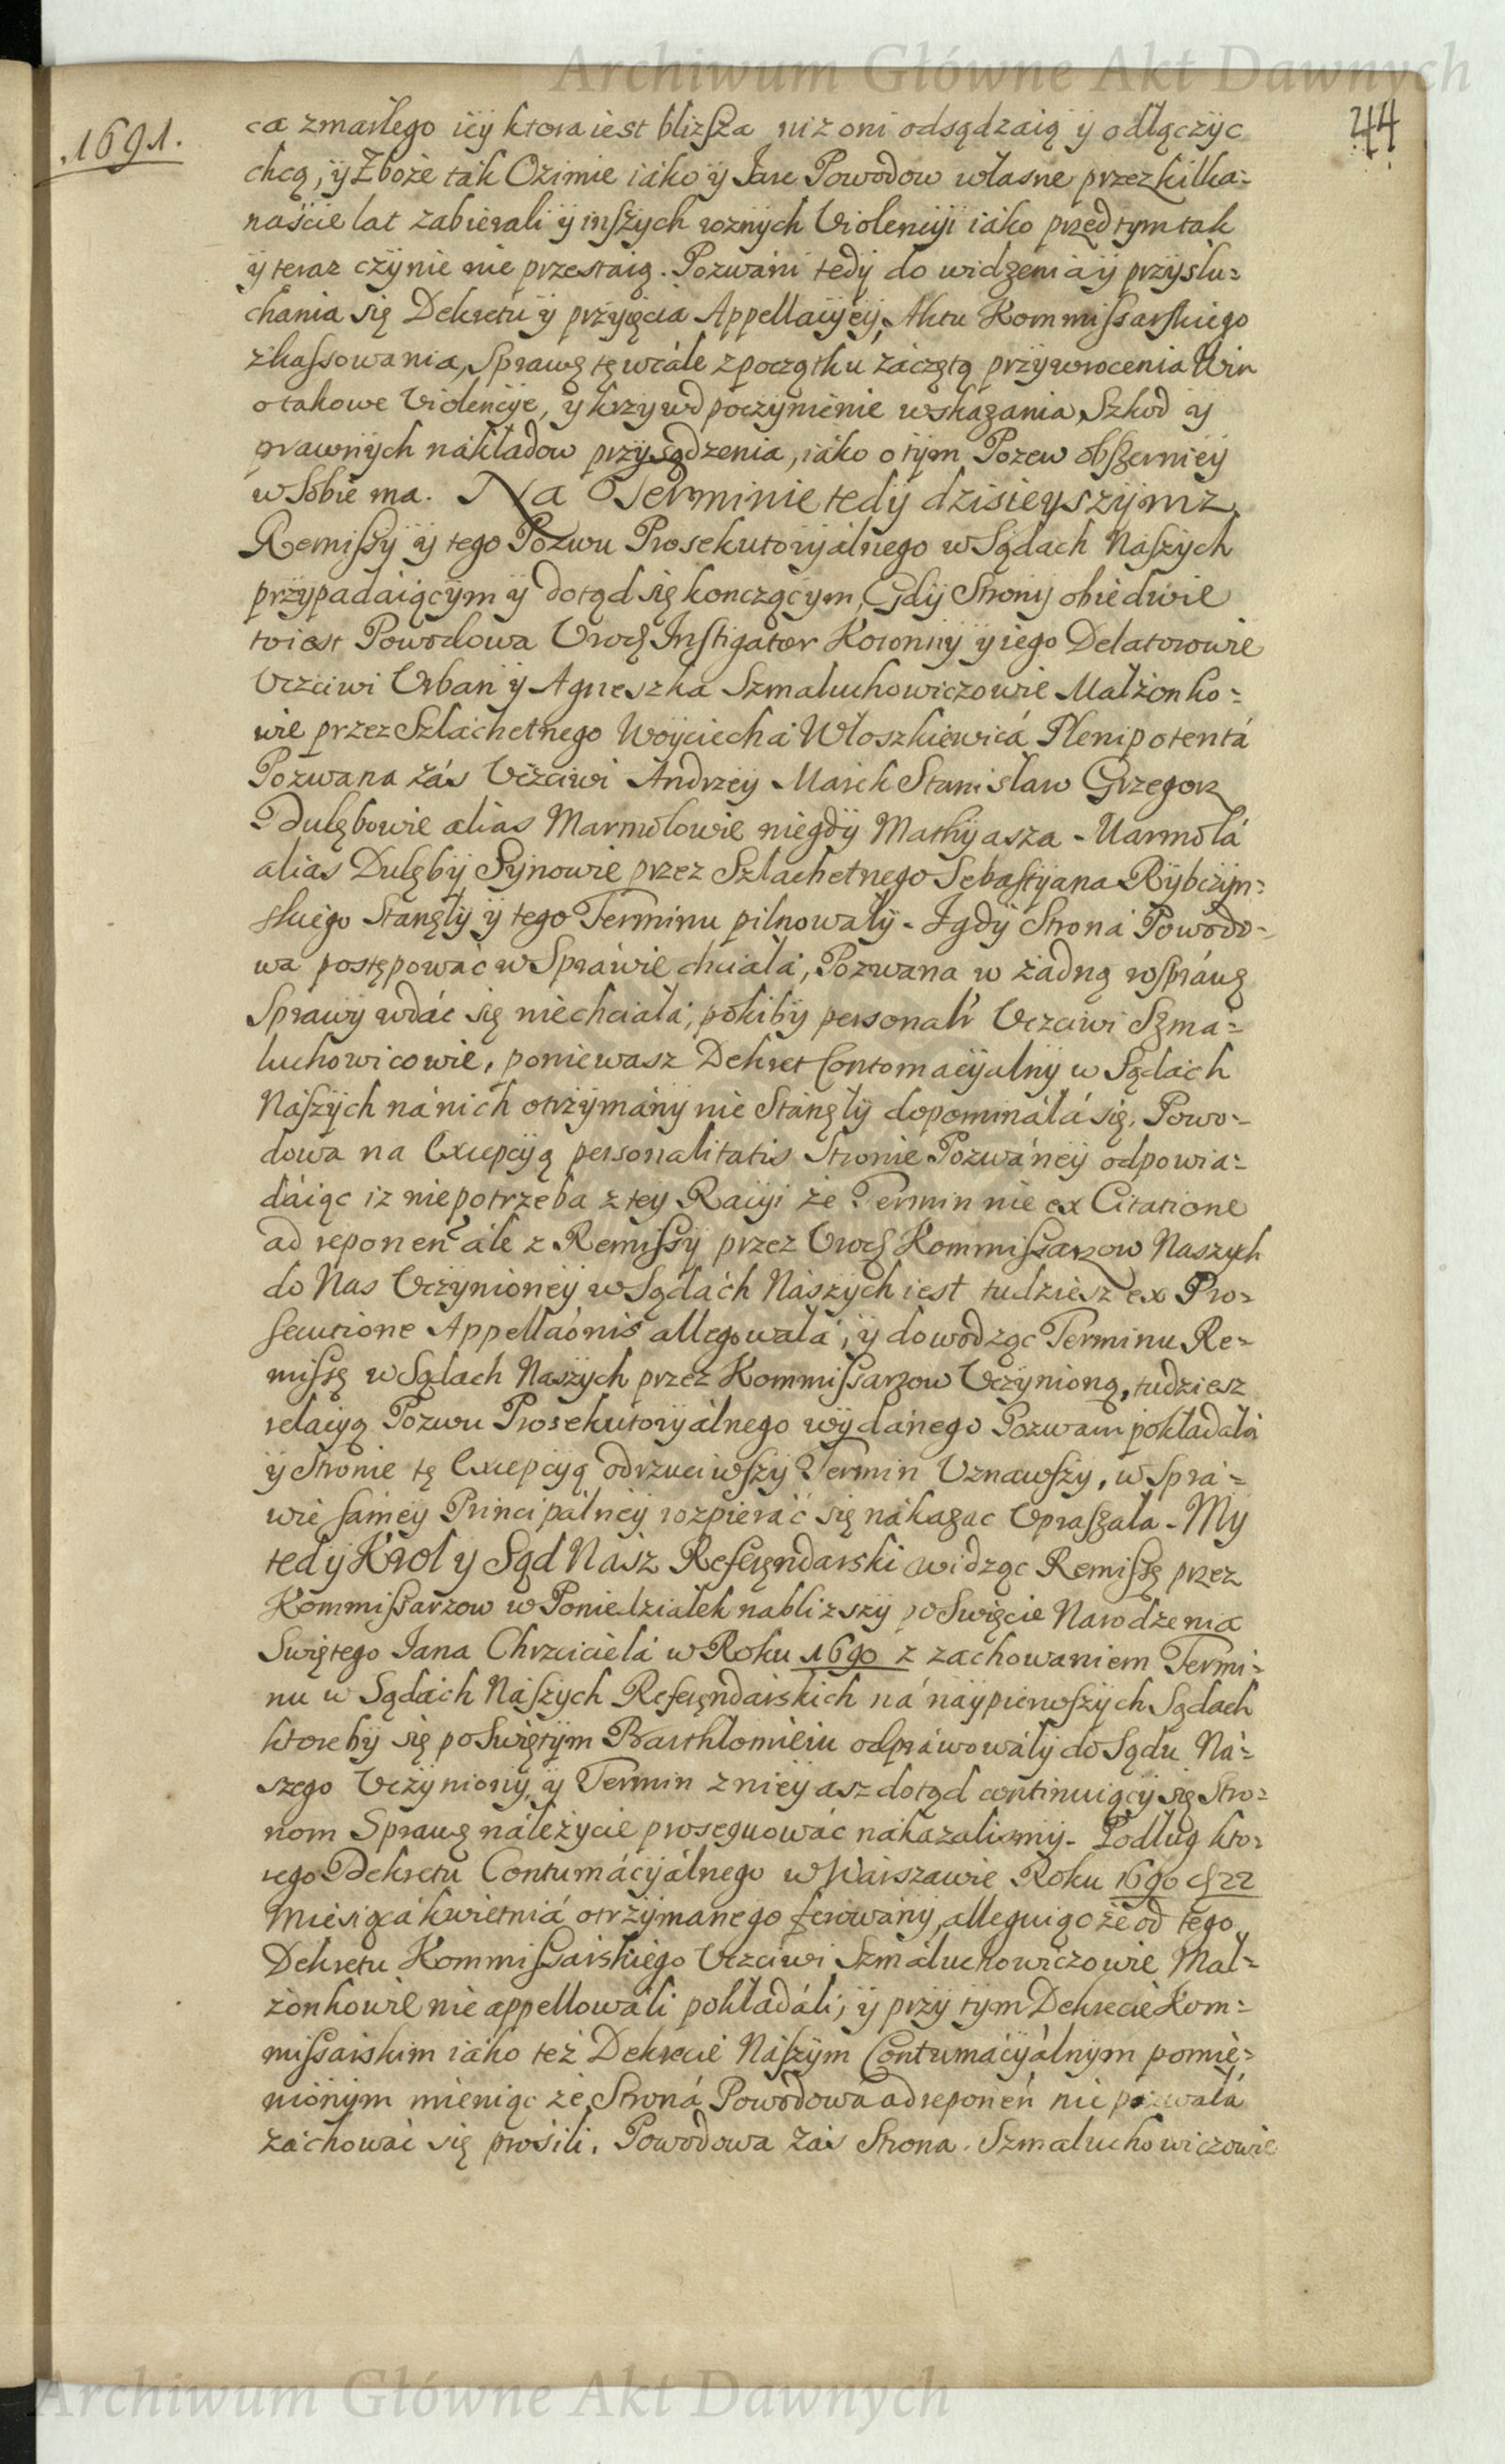 Archiwum Główne Akt Dawnych
.1691.
44
ca zmarłego iey ktora iest bliższa niz oni odsądzaią y odłączyc
chcą, y Zboże tak Ozimie iako y Jare Powodow własne przez kilka=
naście lat zabierali y inszych roznych Violencyi iako przed tym tak
y teraz czynie nie przestaią. Pozwani tedy do widzenia y przysłu=
chania się Dekretu y przyięcia Appellacyey, Aktu Kommissarskiego
zkassowania, Sprawę tę wcále z początku záczętą przywrocenia Win
o takowe Violencye, y krzywd poczynienie wskazania, Szkod y
prawnych nakładow przysądzenia, iáko o tym Pozew obszerniey
w sobie ma. Na Terminie tedy dzisieyszym z
Remissy y tego Pozwu Prosekutoryalnego w Sądach Naszych
przypadaiącym y dotąd się konczącym, Gdy Strony obiedwie
to iest Powodowa Urodz Instigator Koronny y iego Delatorowie
Uczciwi Urban y Agneszka Szmaluchowiczowie Małżonko=
wie przez Szlachetnego Woyciecha Włoszkiewica Plenipotenta
Pozwana zás Uczciwi Andrzey Marek Stanisław Grzegorz
Dulębowie alias Marmołowie niegdy Mathyasza Marmoła
alias Dulęby Synowie przez Szlachetnego Sebastyana Rybczyn=
skiego Stanęły y tego Terminu pilnowały. I gdy Strona Powodo=
wa postępować w Sprawie chciała, Pozwana w żadną rospráwę
Sprawy wdáć się niechciała, pokiby personalr Uczciwi Szma=
luchowicowie, poniewasz Dekret Contomacyalny w Sądach
Nászych ná nich otrzymány nie Stánęły dopomináłá się. Powo=
dowa na Excepcyą personalitatis Stronie Pozwáney odpowia=
dáiąc iz niepotrzeba z tey Racyi że Termin nie ex Citatione
ad reponen̄ ále z Remissy przez Urodz Kommissarzow Naszych
do Nas Uczynioney w Sądách Nászych iest tudziesz ex Pro=
secutione Appellaōnis allegowała, y dowodząc Terminu Re=
missę w Sądach Naszych przez Kommissarzow Uczynioną, tudziesz
relacyą Pozwu Prosekutoryálnego wydánego Pozwam pokładałá
y Stronie tę Excepcyą odrzuciwszy Termin Uznawszy, w Sprá=
wie sámey Principálney rozpieráć się nákazac Upraszała. My
tedy Krol y Sąd Nász Referęndarski widząc Remissę przez
Kommissarzow w Poniedziałek nablizszy po Swięcie Narodzenia
Swiętego Jana Chrzciciela w Roku 1690 z zachowaniem Termi=
nu w Sądách Nászych Referęndarskich ná naypierwszych Sądach
ktoreby się po Swiętym Barthłomieiu odpráwowały do Sądu Ná=
szego Uczyniony, y Termin z niey asz dotąd continuiący się Stro=
nom Sprawę náleżycie proseguowáć nakazalismy. Podług kto=
rego Dekretu Contumácyálnego w Warszawie Roku 1690 d 22
Miesiąca kwietniá otrzymanego ferowány, alleguiąc że od tego
Dekretu Kommissarskiego Uczciwi Szmáluchowiczowie Mał=
żonkowie nie appellowáli pokładáli, y przy tym Dekrecie Kom=
missarskim iáko też Dekrecie Nászym Contumácyálnym pomie=
nionym mieniąc że Stroná Powodowá ad reponen̄ nie pozwáłá
záchowáć się prosili. Powodowa zás Strona. Szmaluchowiczowie
Archiwum Główne Akt Dawnych